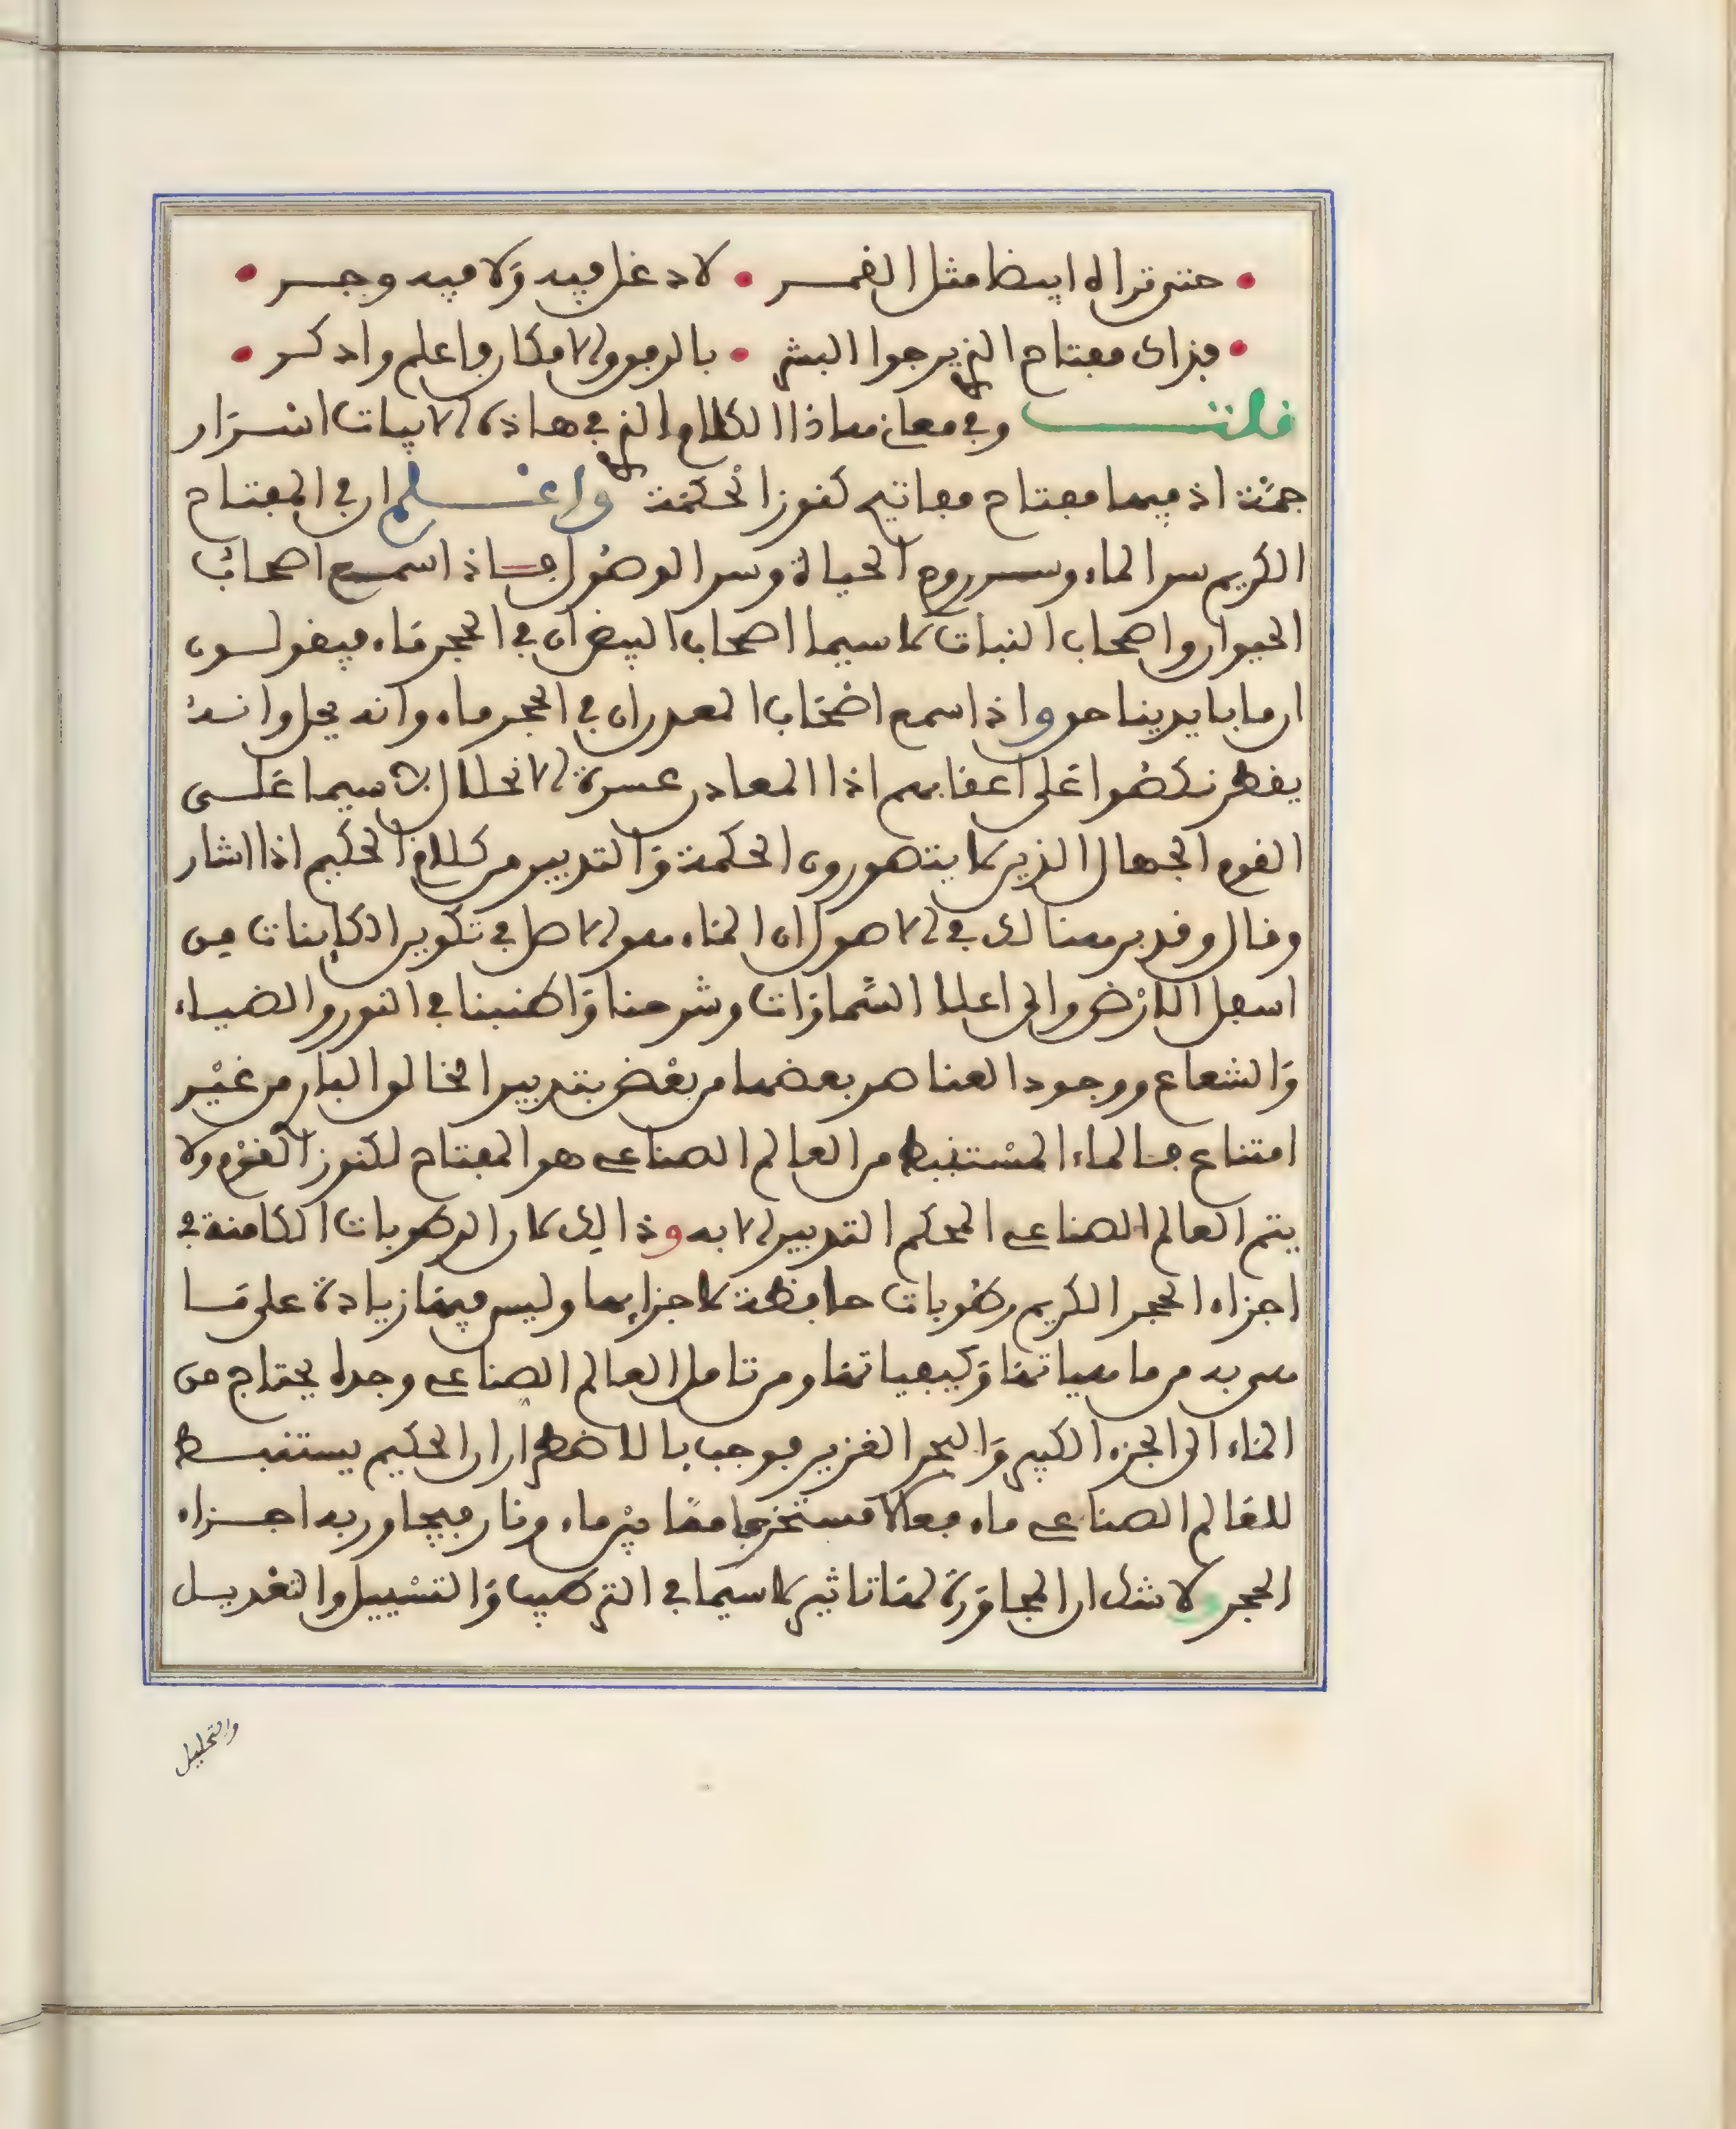 حتى تراه ابيضا مثل القمر • لا دغل فيه ولا فيه وجر
فذاك مفتاح الذي رجوا البشر • بالرمز والامكار فاعلم وادكر
قلت وفي معاني هاذا الكلام الذي في هاذه الابيات اسرار
جمة اذ فيها مفتاح مفاتيح كنوز الحكمة واعلم ان في المفتاح
الكريم سر الماء وسر روح الحياة وسر الوصول فاذا سمع اصحاب
الحيوان واصحاب النبات لا سيما اصحاب البيض ان في الحجر ماء فيقولون
ان ما بايدينا هو واذا سمع اصحاب المعدن ان في الحجر ماء وانه يحل وانه
يقطر نكصوا على اعقابهم اذا المعادن عسرة الانحلال لا سيما على
القوم الجهال الذين لا يتصورون الحكمة والتدبير من كلام الحكيم اذا اشار
وقال وقد برهنا لك في الاصول ان الماء هو الاصل في تكوين الكاينات من
اسفل الارض والى اعلا السماوات وشرحنا واطنبنا في النور والضياء
والشعاع ووجود العناصر بعضها من بعض بتدبير الخالق البار من غير
امتناع فالماء المستنبط من العالم الصناعي هو المفتاح لكنوز القوم ولا
يتم العالم الصناعي المحكم التدبير الا به وذالك لان الرطوبات الكامنة في
اجزاء الحجر الكريم رطوبات حافظة لاجزايها وليس فيها زيادة على ما
هي به من ماهياتها وكيفياتها ومن تامل العالم الصناعي وجده يحتاج من
الماء الى الجزء الكبير والبحر الغزير فوجب بالاضطرار ان الحكيم يستنبط
للعالم الصناعي ماء فعالا مستخرجا من بين ماء ونار فيجاور به اجزاء
الحجر ولا شك ان المجاورة لها تاثير لا سيما في التركيب والتسييل والتعديل
والتحليل